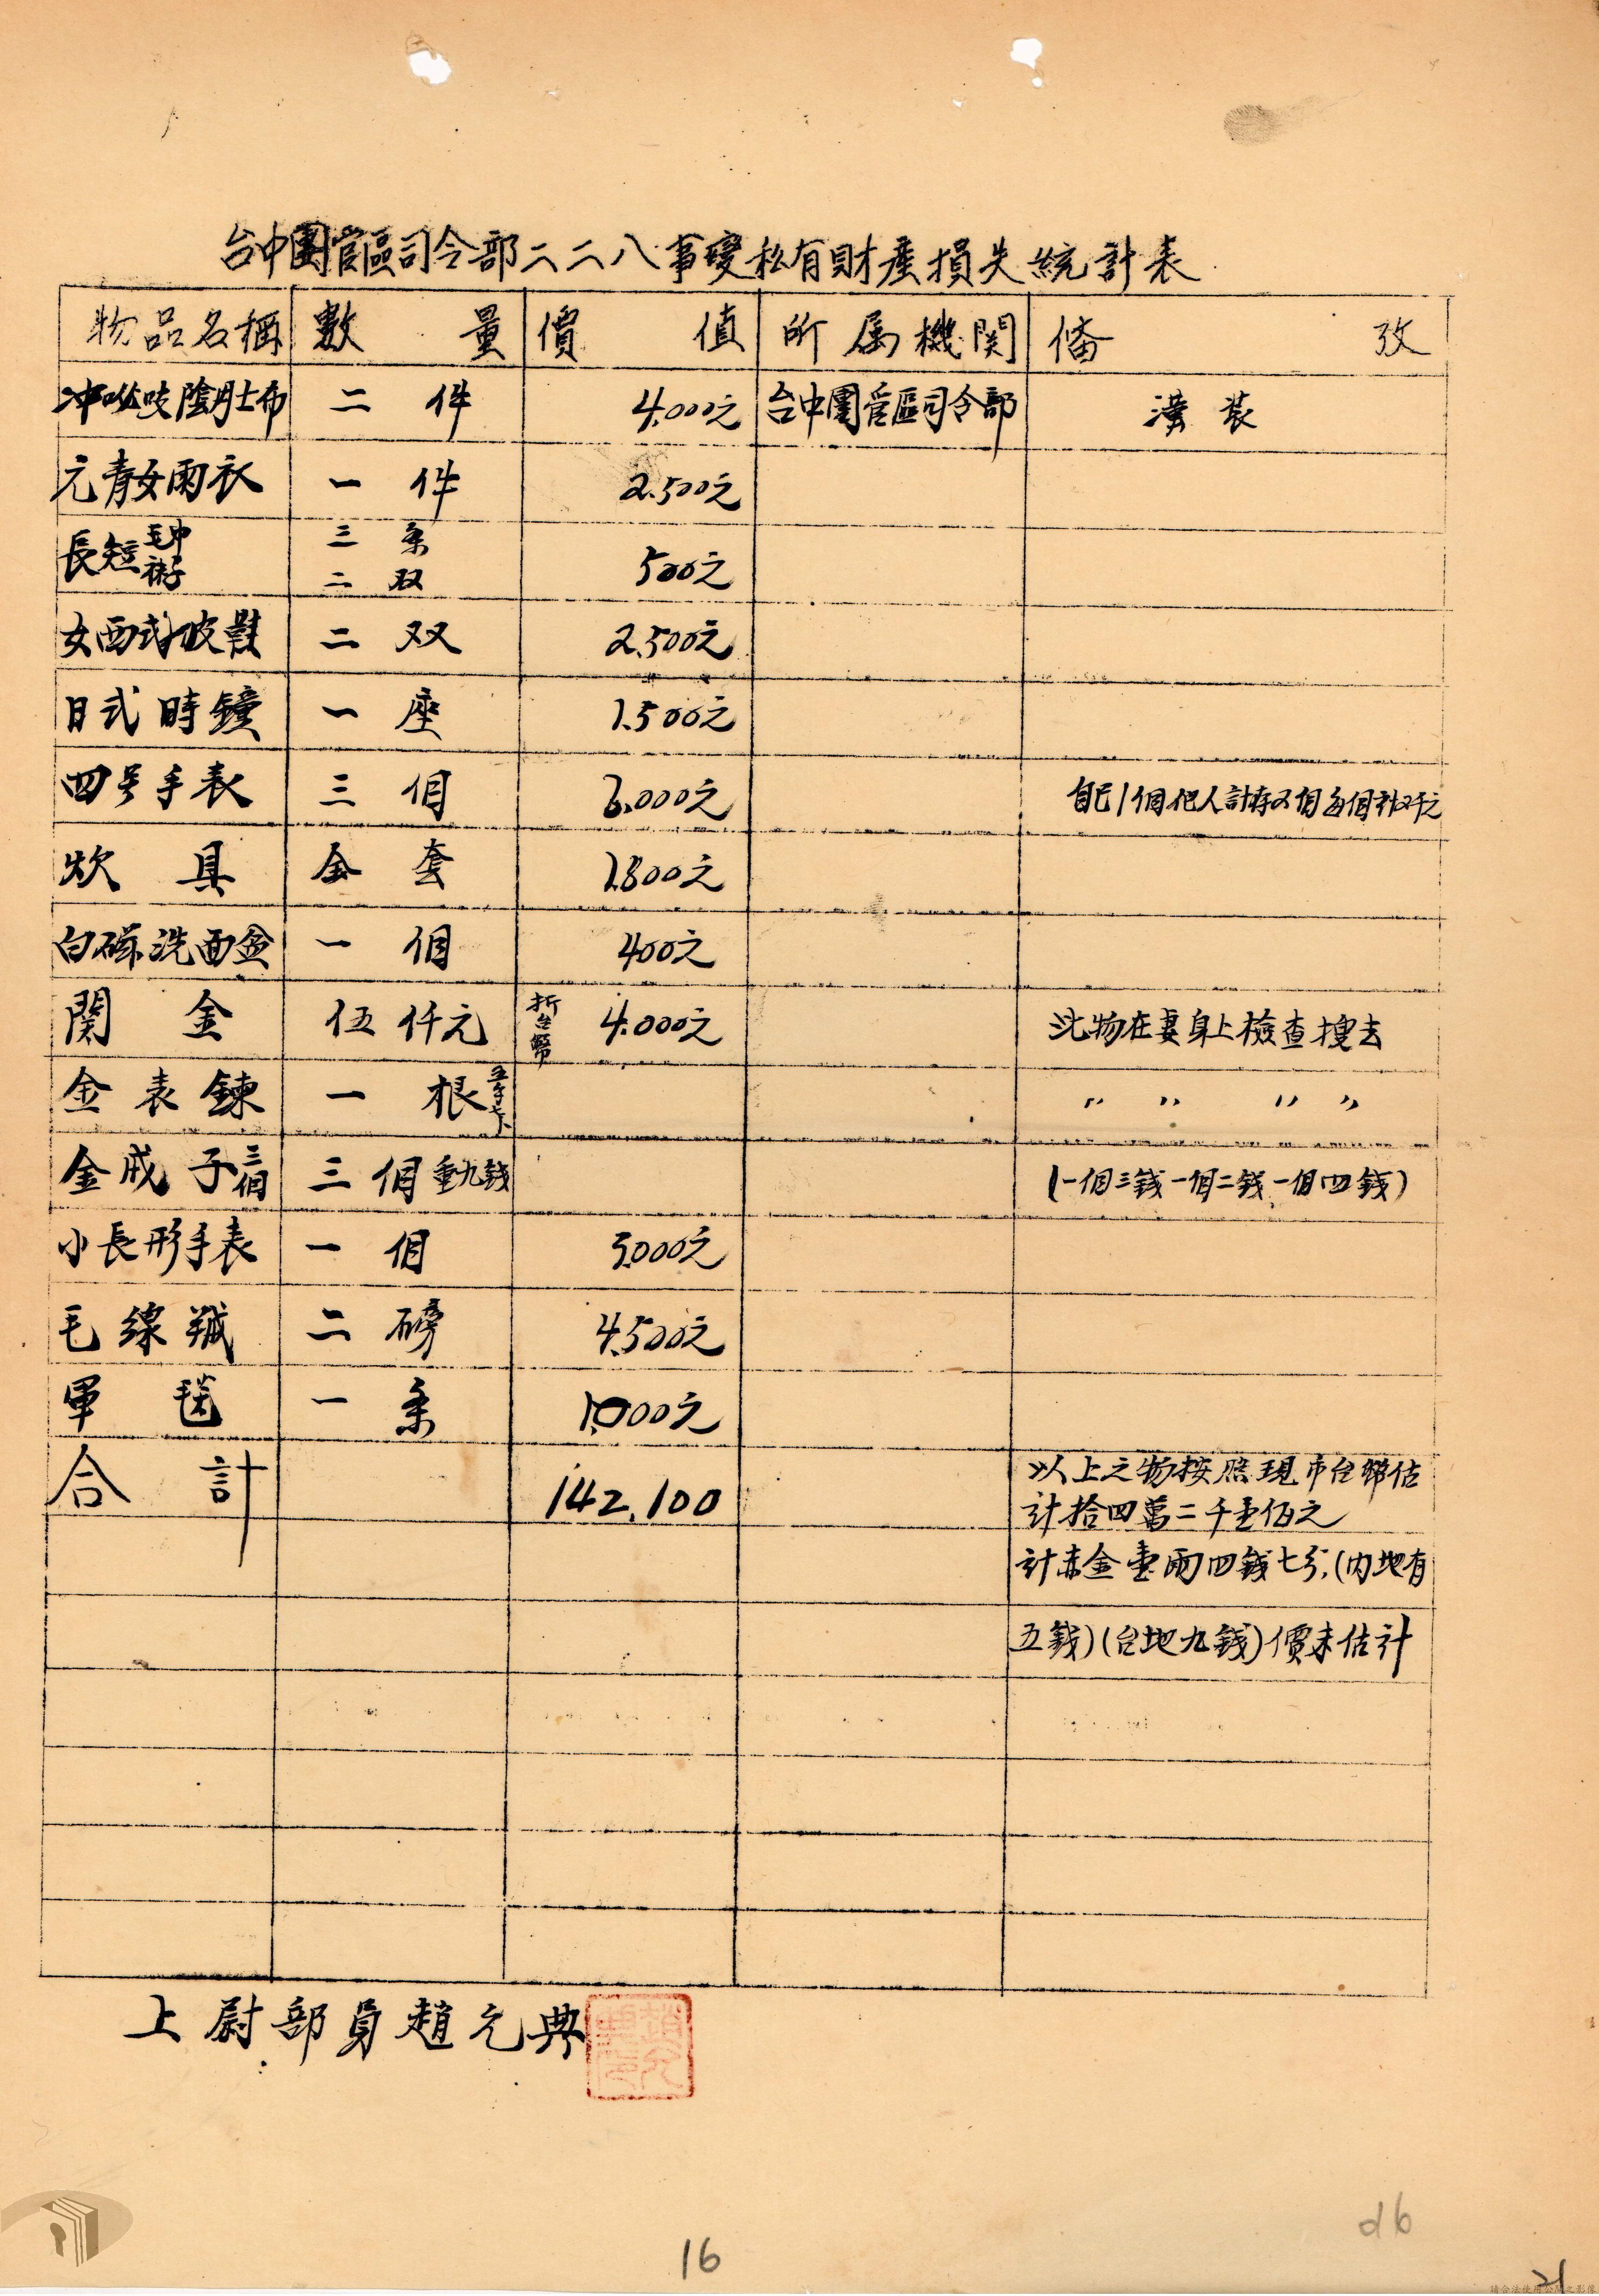 台中團管區司令部二二八事變私有財產損失統計表
物品名稱 數量 價值 所属機関 俻攷
冲嗶吱陰丹士布 二件 4.000元 台中團管區司令部 漢装
元青女雨衣 一件 2.500元
長短毛巾袜子 三条二双 500元
女西式皮鞋 二双 2.500元
日式時鐘 一座 1.500元
四号手表 三個 6.000元 自己1個他人計存2個每個
炊具 全套 1.800元
白磁洗面盆 一個 400元
関金 伍仟元 折台幣 4.000元 此物在妻身上檢查搜去
金表鍊 一根 〃 〃 〃 〃
金戒子三個 三個重九錢 (一個三錢一個二錢一個四錢)
小長形手表 一個 5.000元
毛線絨 二磅 4.500元
軍毯 一条 1.000元
合計 142.100 以上之物按照現市台幣估
計拾四萬二千壹佰元
計赤金壹兩四錢七分,(内地有
五錢)(台地九錢)價未估計
上尉部員趙元典
16
26
21
請合法使用公開之影像